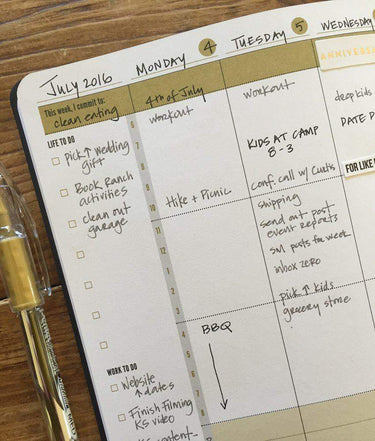 July 2016
This week, I commit to:
clean eating
LIFE TO DO
Pick ↑ Wedding
gift
Book Ranch
activities
clean out
garage
WORK TO DO
Website
↑ dates
Finish Filming
KS video
content-
MONDAY 4
4th of July
workout
Hike + Picnic
BBQ
TUESDAY 5
workout
KIDS AT CAMP
8 - 3
conf. call w/ Curtis
shipping
send out post
event reports
SM posts for week
inbox zero
pick ↑ kids
grocery store
WEDNESDAY
ANNIVERS
drop kids
DATE
FOR LIKE
6
7
8
9
10
11
12
1
2
3
4
5
6
7
8